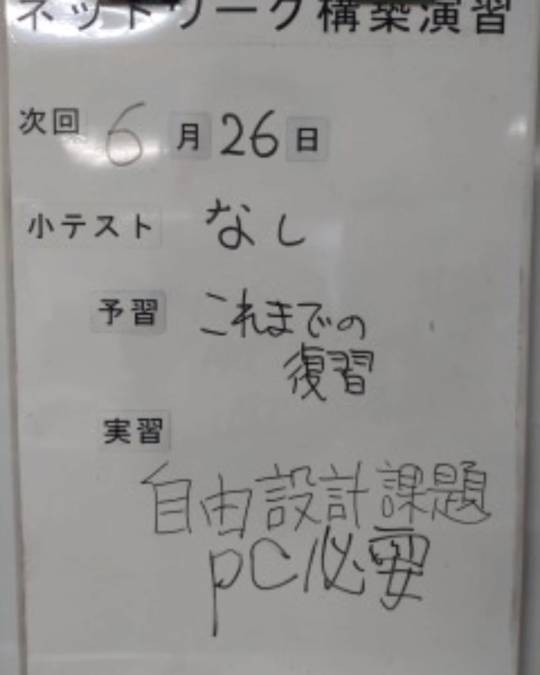 ネットワーク構築演習
次回 6月26日
小テスト なし
予習 これまでの
復習
実習
自由設計課題
PC必要